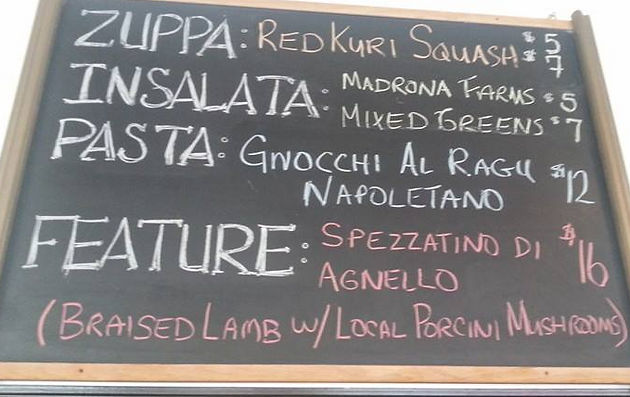 ZUPPA: RED KURI SQUASH $5 $7
INSALATA: MADRONA FARMS $5
MIXED GREENS $7
PASTA: GNOCCHI AL RAGU $12
NAPOLETANO
FEATURE: SPEZZATINO DI $16
AGNELLO
(BRAISED LAMB W/ LOCAL PORCINI MUSHROOMS)